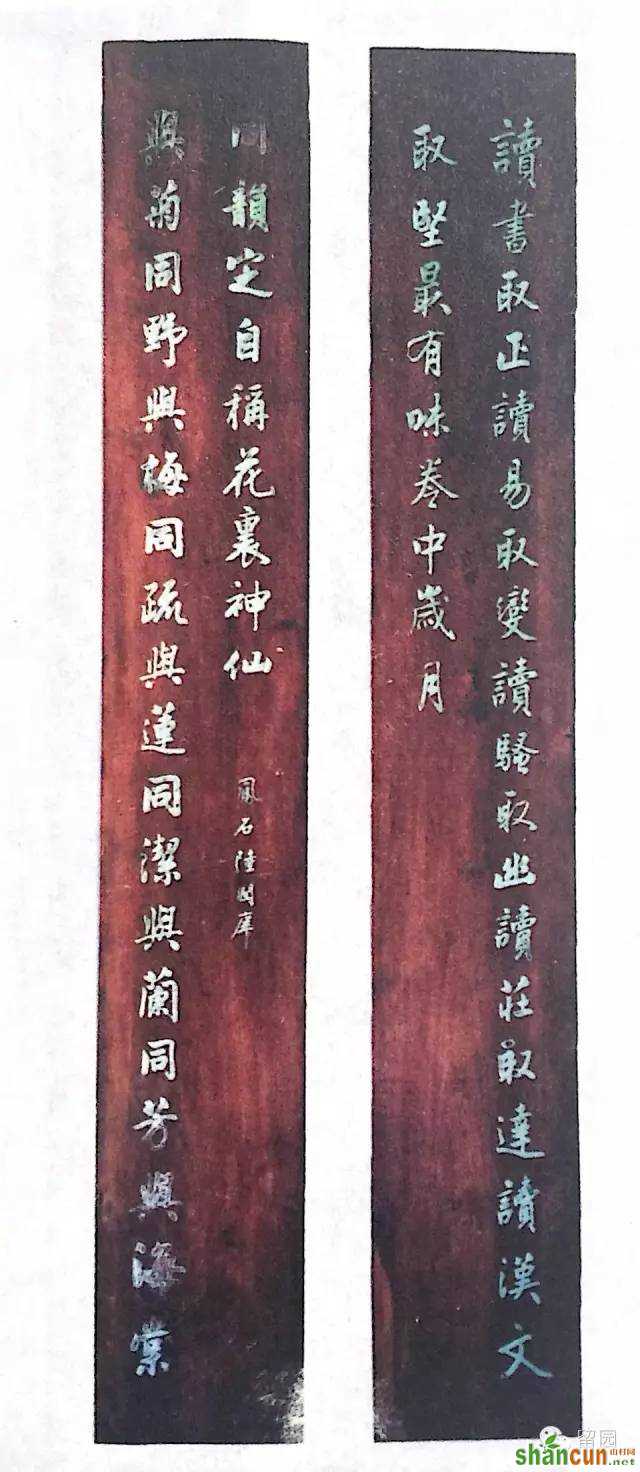 讀書取正讀易取變讀騷取幽讀莊取達讀漢文
取堅最有味卷中歲月
與菊同野與梅同疏與蓮同潔與蘭同芳與海棠
同韻定自稱花裏神仙
鳳石陸潤庠
留园
shancun 山村网
.net